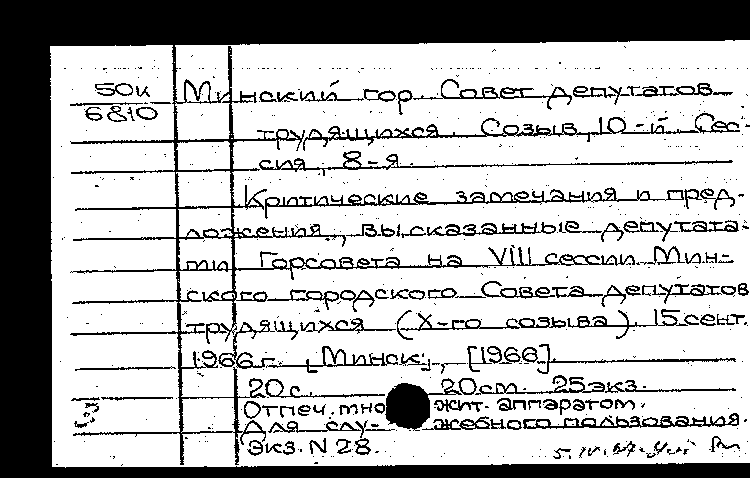 50к Минский гор. Совет депутатов
6810
трудящихся. Созыв, 10-й. Сес-
сия, 8-я.
Критические замечания и пред-
ложения, высказанные депутата-
ми Горсовета на VIII сессии Мин-
ского городского Совета депутатов
трудящихся (X-го созыва). 15 сент.
1966 г. [Минск], [1966].
20 с. 20 см. 25 экз.
Отпеч. мно жит. аппаратом.
Для слу- жебного пользования.
Экз. N 28.